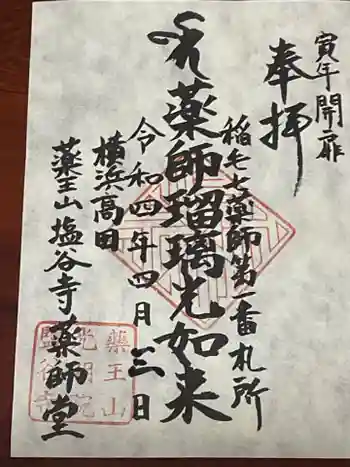 寅年開扉
奉拝
稲毛七薬師第一番札所
薬師瑠璃光如来
令和四年四月三日
横浜高田
薬王山塩谷寺薬師堂
薬王山